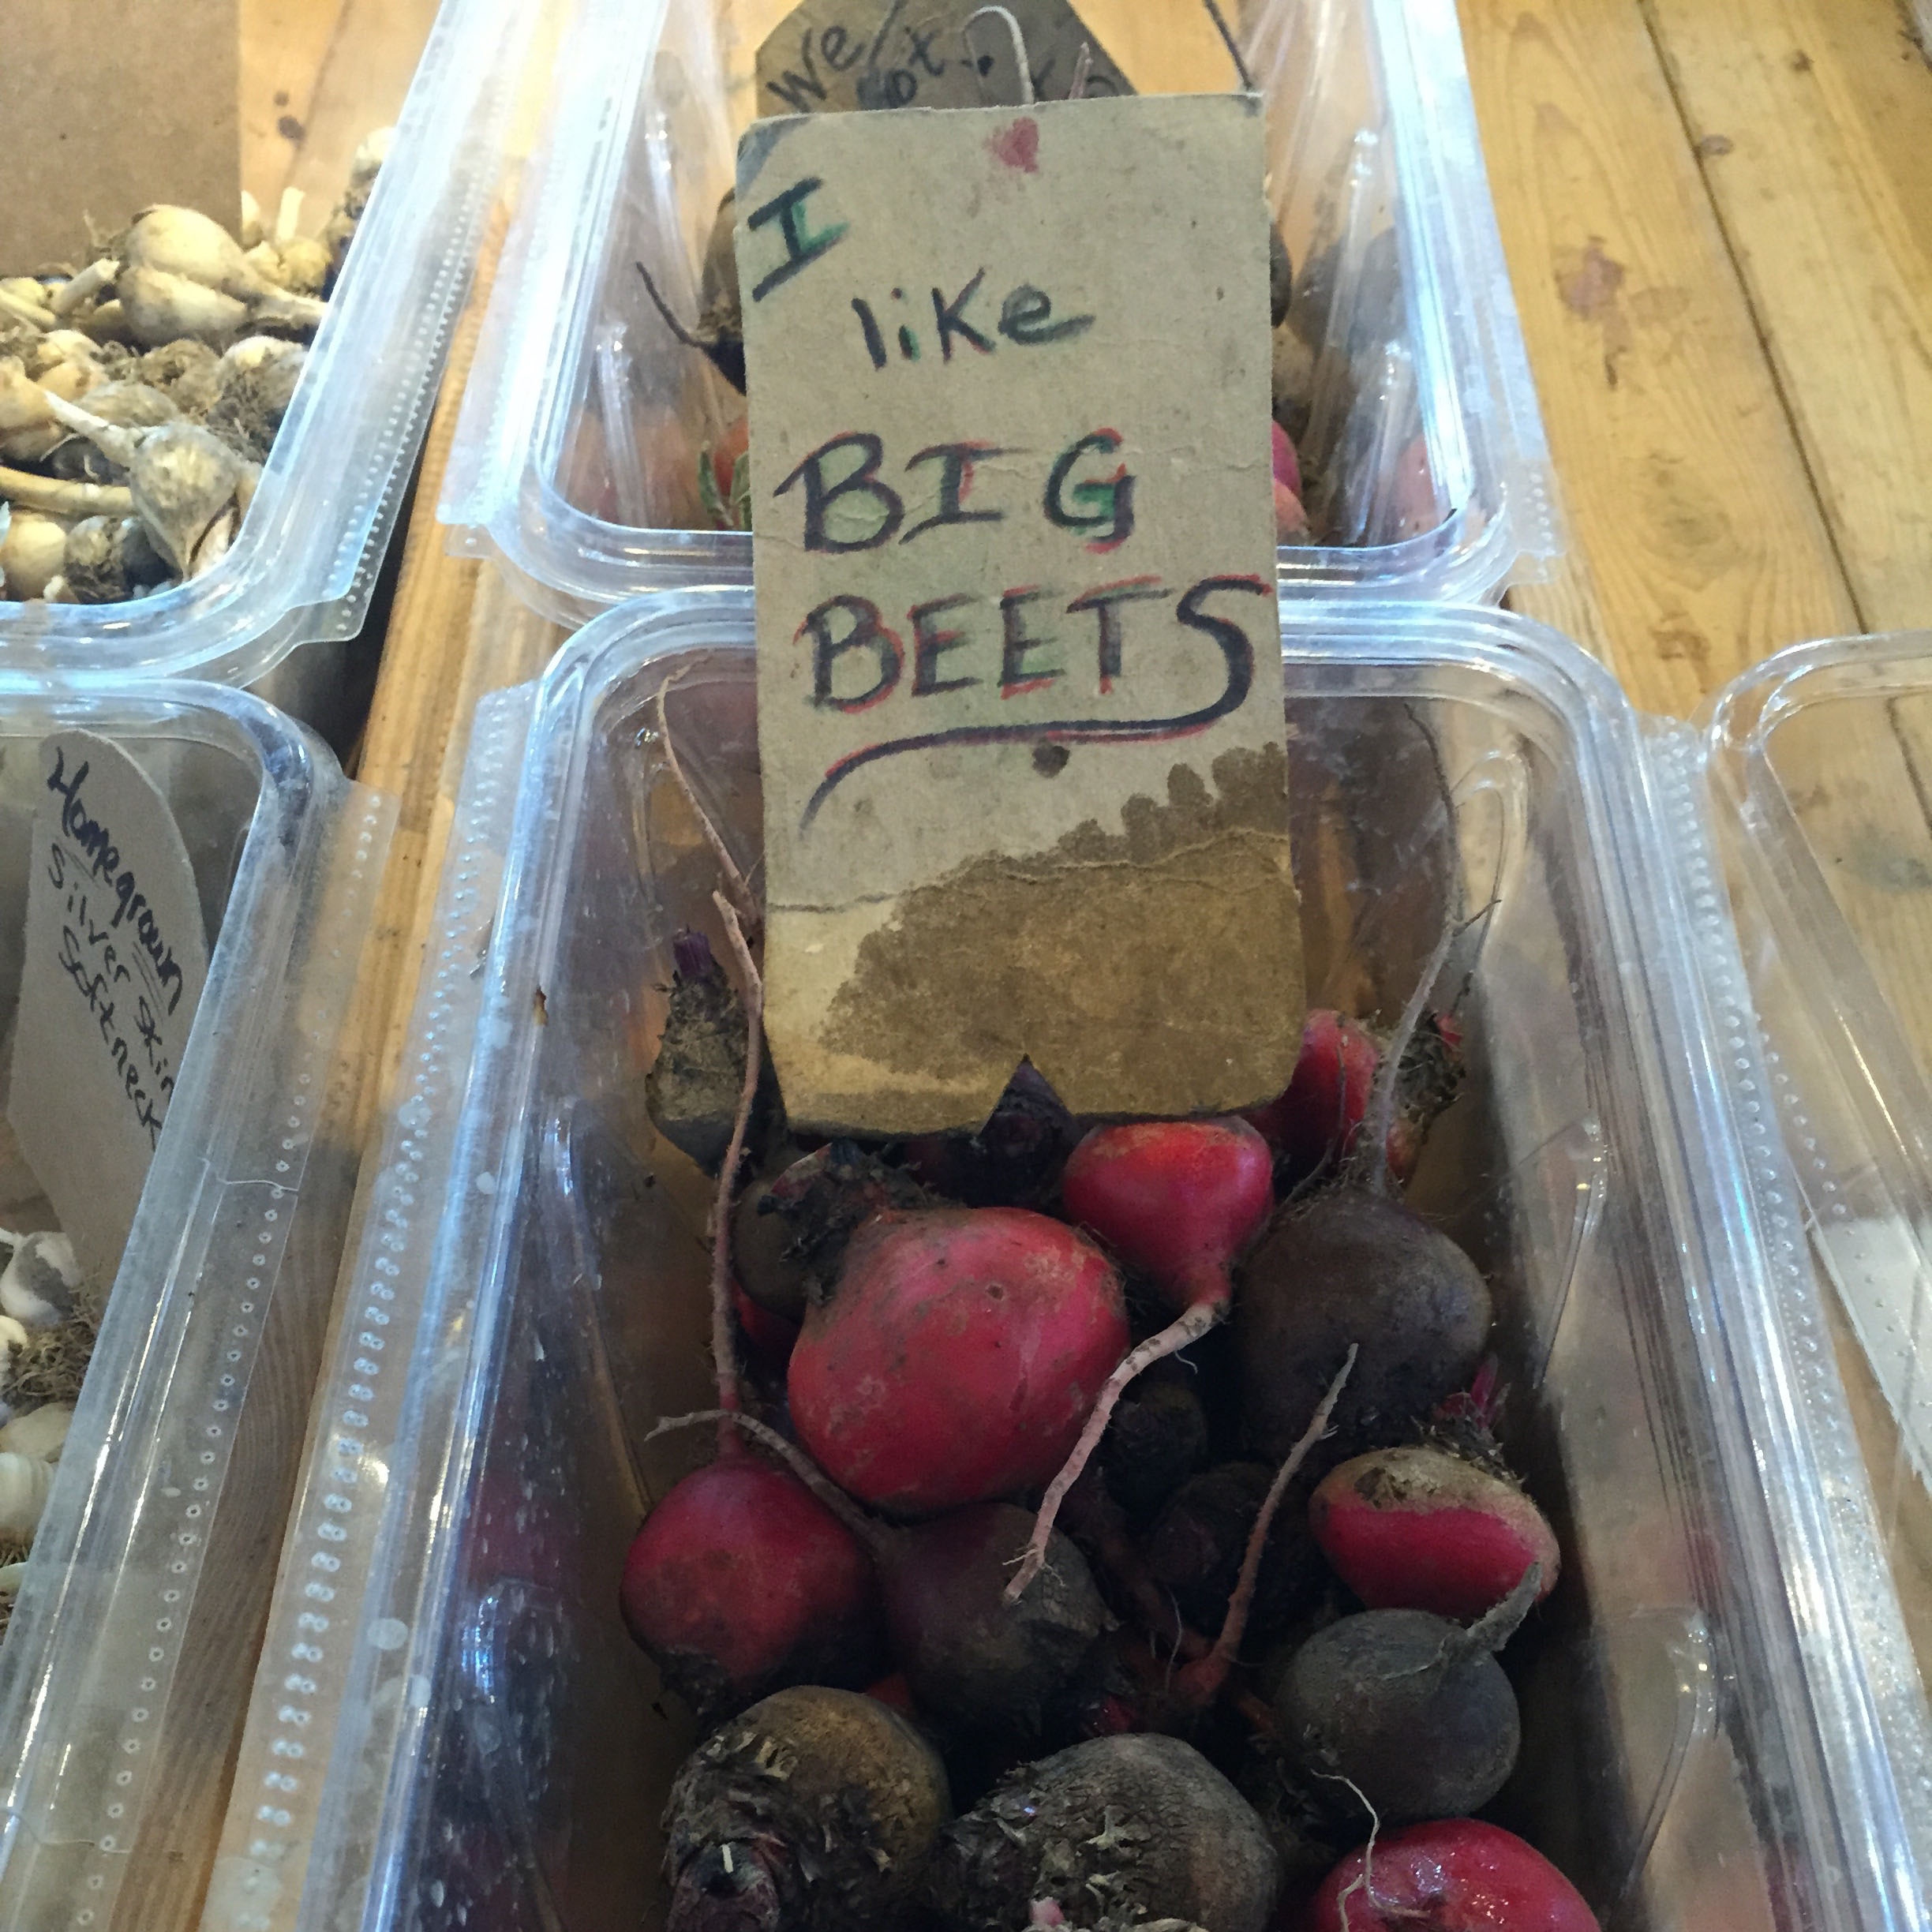 We
I
like
BIG
BEETS
Homegrown
Silver Skin
Softneck